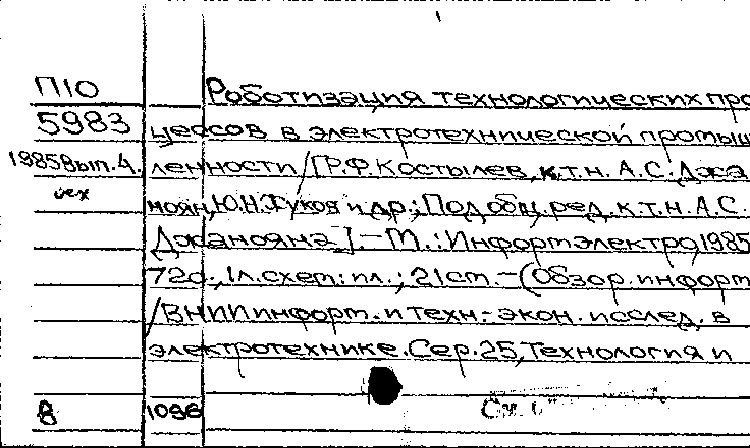 П10 Роботизация технологических про
5983 цессов в электротехнической промыш
1985 Вып. 4. ленности / [Р.Ф. Костылев, к.т.н. А.С. Джа
ноян, Ю.Н. Жуков и др.; Под общ. ред. к.т.н. А.С.
Джанояна]. – М.: Информэлектро, 1985
72 с., 1 л. схем: ил.; 21 см. – (Обзор. информ
/ ВНИИ информ. и техн.-экон. исслед. в
электротехнике. Сер. 25, Технология и
В См.